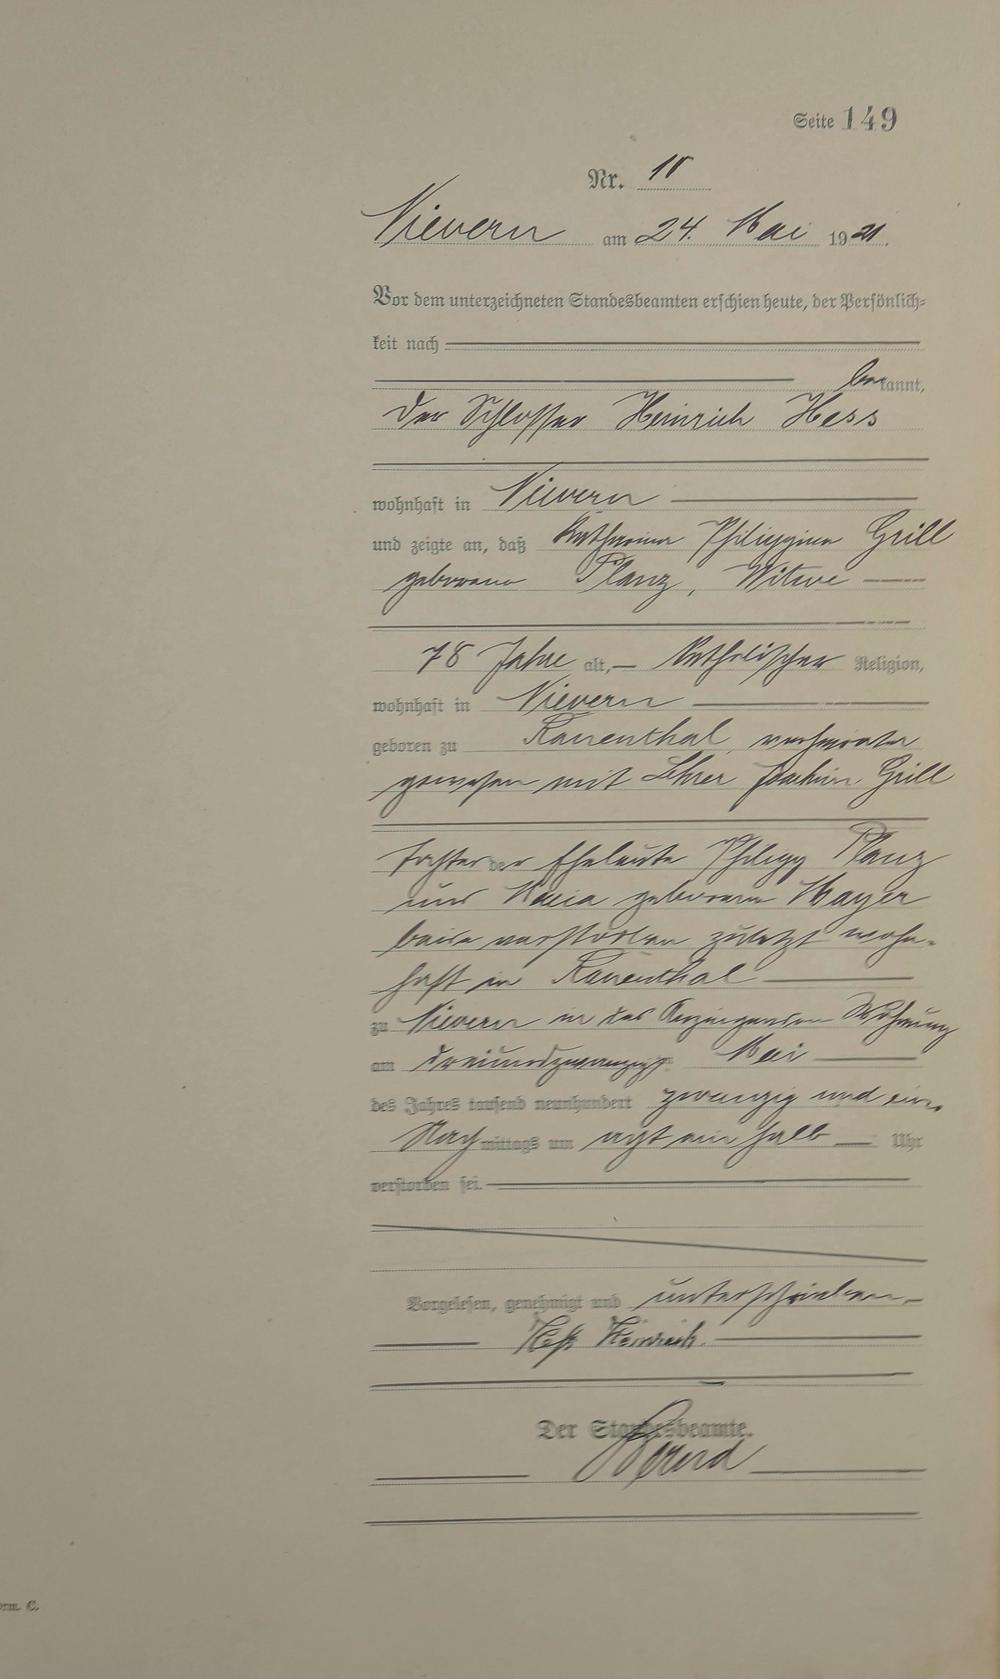 Seite 149
Nr. 10
Nievern am 24. Mai 1921.
Vor dem unterzeichneten Standesbeamten erschien heute, der Persönlich-
keit nach
bekannt,
der Schlosser Heinrich Hess
wohnhaft in Nievern
und zeigte an, daß Katharina Philippina Grill
geborene Planz, Witwe
78 Jahre alt, katholischer Religion,
wohnhaft in Nievern
geboren zu Rauenthal, verheiratet
gewesen mit Lehrer Joachim Grill
Tochter der Eheleute Philipp Planz
und Maria geborene Mayer
beide verstorben zuletzt wohn-
haft in Rauenthal
zu Nievern in der Wohnung
am dreiundzwanzigst Mai
des Jahres tausend neunhundert zwanzig und ein
Nachmittags um acht ein halb Uhr
verstorben sei.
Vorgelesen, genehmigt und unterschrieben
Heß Heinrich.
Der Standesbeamte.
orm. C.